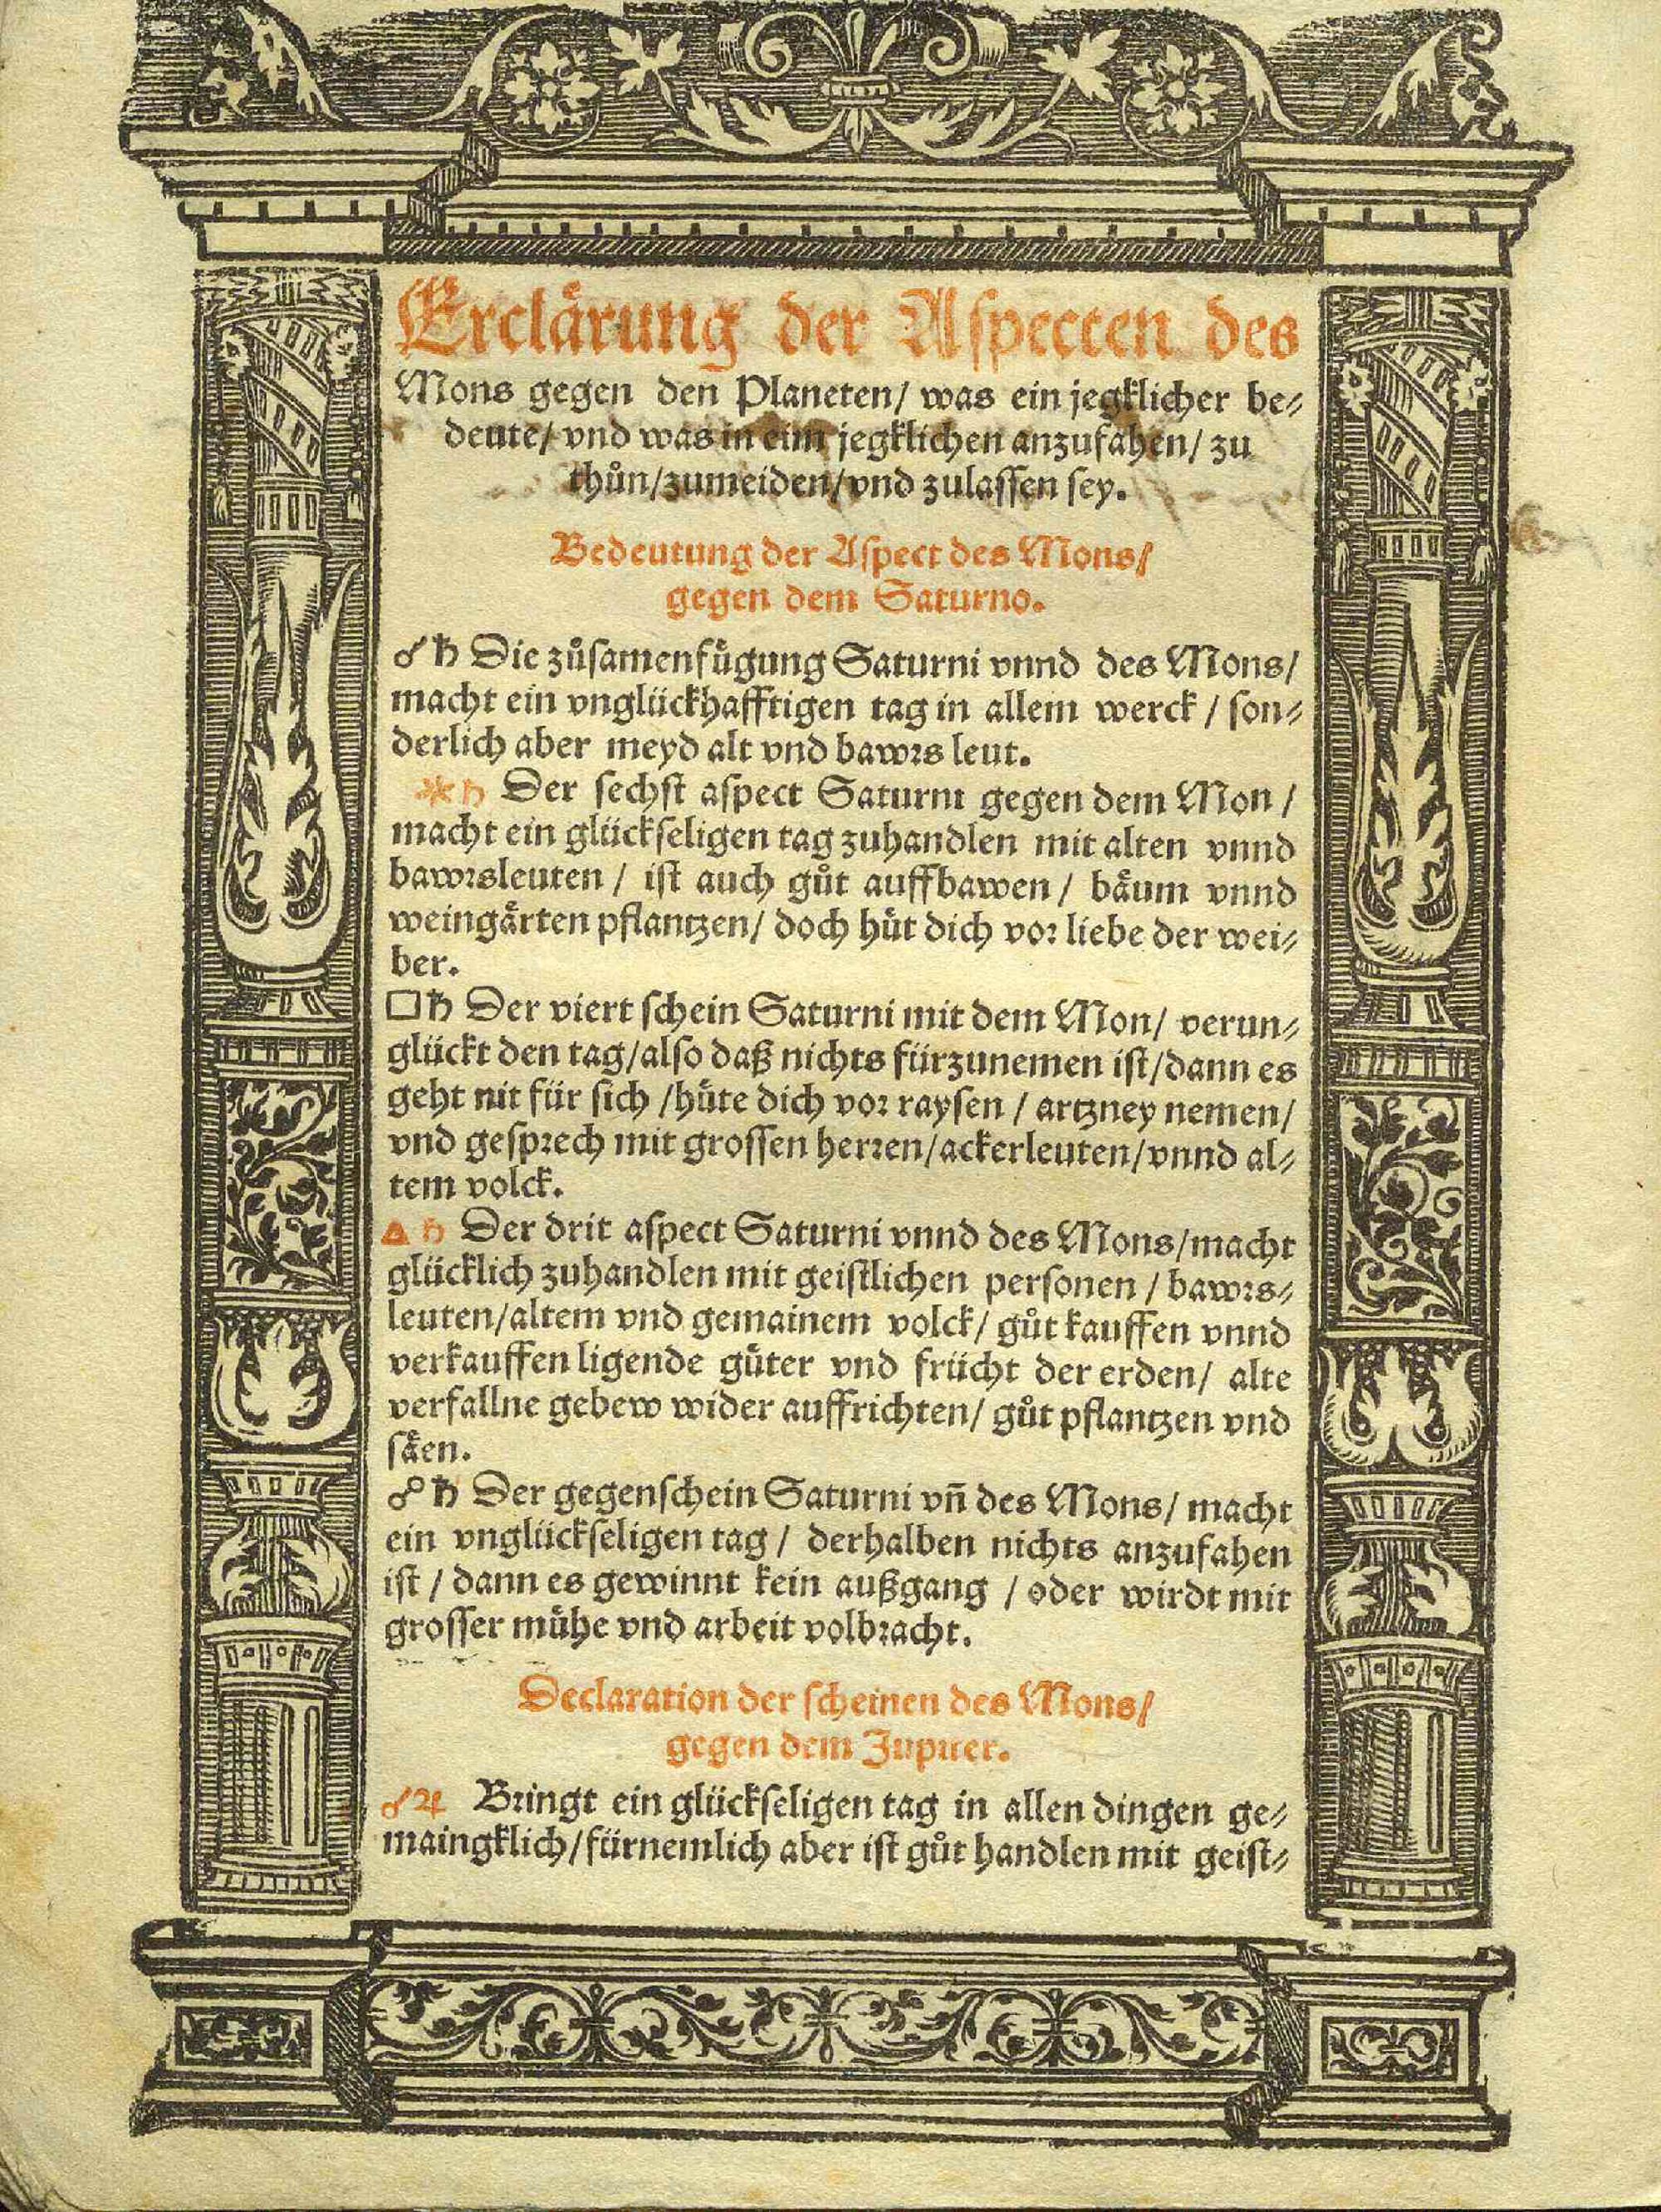 Erclärung der Aſpecten des
Mons gegen den Planeten/ was ein jegklicher be⸗
deute/ vnd was in eim jegklichen anzufahen/ zu
thůn/zumeiden/vnd zulaſſen ſey.
Bedeutung der Aſpect des Mons/
gegen dem Saturno.
☌♄ Die zůſamenfügung Saturni vnnd des Mons/
macht ein vnglückhafftigen tag in allem werck / ſon⸗
derlich aber meyd alt vnd bawꝛs leut.
⚹♄ Der ſechſt aſpect Saturni gegen dem Mon /
macht ein glückſeligen tag zuhandlen mit alten vnnd
bawꝛsleuten / iſt auch gůt auffbawen / bäum vnnd
weingärten pflantzen/ doch hüt dich voꝛ liebe der wei⸗
ber.
□♄ Der viert ſchein Saturni mit dem Mon/ verun⸗
glückt den tag/alſo daß nichts fürzunemen iſt/dann es
geht nit für ſich /hüte dich voꝛ rayſen / artzney nemen/
vnd geſpꝛech mit groſſen herꝛen/ackerleuten/vnnd al⸗
tem volck.
△ ♄ Der drit aſpect Saturni vnnd des Mons/macht
glücklich zuhandlen mit geiſtlichen perſonen / bawꝛs⸗
leuten/altem vnd gemainem volck/ gůt kauffen vnnd
verkauffen ligende güter vnd frücht der erden/ alte
verfallne gebew wider auffrichten/ gůt pflantzen vnd
ſäen.
☍♄ Der gegenſchein Saturni vn̄ des Mons/ macht
ein vnglückſeligen tag / derhalben nichts anzufahen
iſt / dann es gewinnt kein außgang / oder wirdt mit
groſſer mühe vnd arbeit volbꝛacht.
Declaration der ſcheinen des Mons/
gegen dem Jupiter.
☌♃ Bꝛingt ein glückſeligen tag in allen dingen ge⸗
maingklich/fürnemlich aber iſt gůt handlen mit geiſt⸗